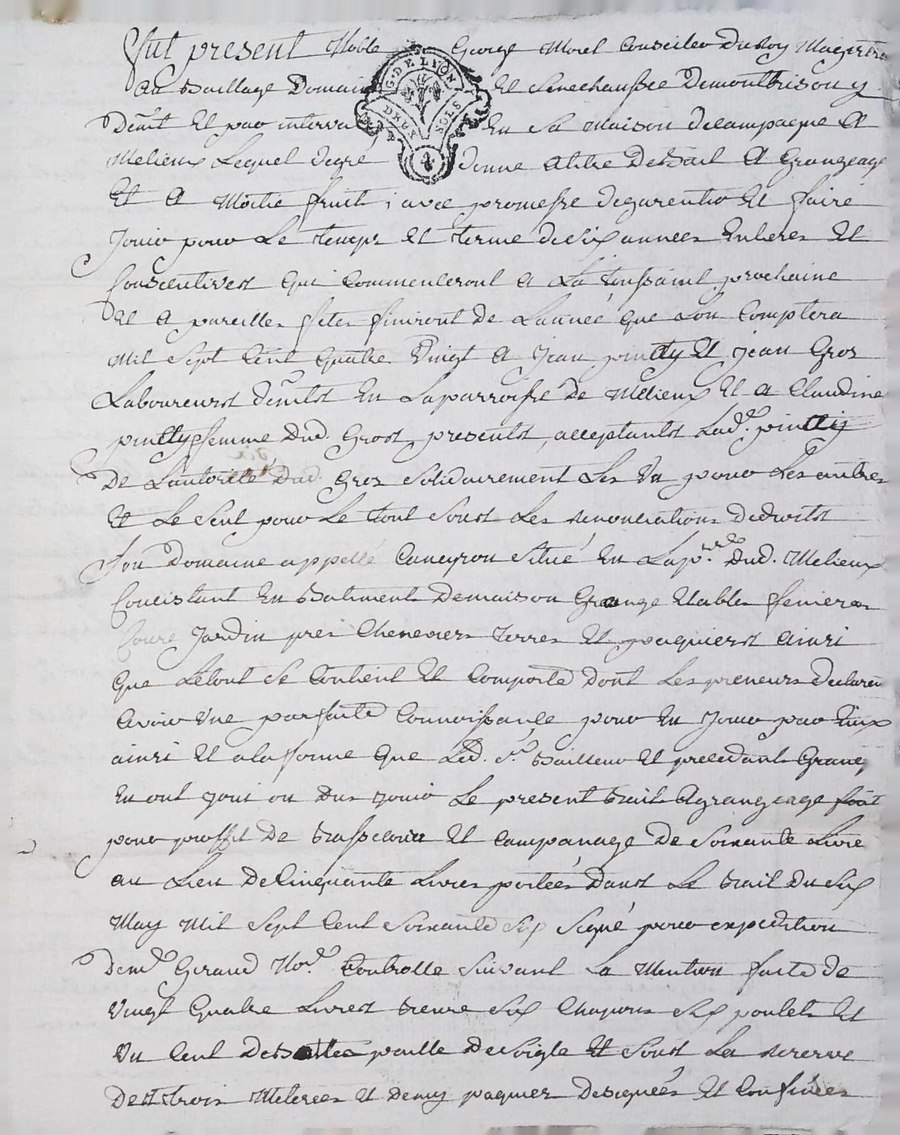 Fut present Noble George Morel Conseiller Du Roy Magistra
G. DE LYON
DEUX SOLS
au Baillage Domaine Et Senechaussée Demontbrison y
Demt Et par interval En Sa Maison Decampagne A
Melieux Lequel degré donne Atitre DeBail A Grangeage
Et A Moitié fruit ; avec promesse degarentir Et faire
Jouir pour Le temps et terme de Six années Entieres Et
Consecutives qui Commenceront A La toussaint prochaine
Et A pareille fete finiront de Lannée que Lon Comptera
Mil Sept Cent Quatre Vingt A Jean Et Jean Gros
Laboureurs demts En Laparroisse De Melieux Et A Claudine
femme Dud. Gros, presents acceptants Lade.
De Lautorité Dud. Gros Solidairement Les Un pour Les autres
Et Le Seul pour Le tout Sous Les renonciations Dedroits
Son Domaine appellé Caneyron Situé En Lapsse. Dud. Melieux
Concistant En Batiments Demaison Grange Etables fenieres
Coure Jardin prés Cheneviers terres Et paquiers ainsi
Que Letout Se Contient Et Comporte Dont Les preneurs declarent
Avoir Une parfaite Connoissance pour En Jouir par Eux
ainsi Et alaforme que Led. Sr. Bailleur Et precedants Grang
En ont Joui ou Dus Jouir Le present Bail Agrangeage fait
pour proffit De Basse cour Et Campanage De Soixante Livre
au Lieu DeCinquante Livres portées Dans Le Bail Du Six
May Mil Sept Cent Soixante Six Signé pour expedition
deme. Giraud Nore. Controllé Suivant La Mention faite de
Vingt Quatre Livres Beurre Six Chapons Six poulets Et
Un Cent De paille De Seigle Et Sous La reserve
De trois Meterées Et demy paquier Designées Et Confinées